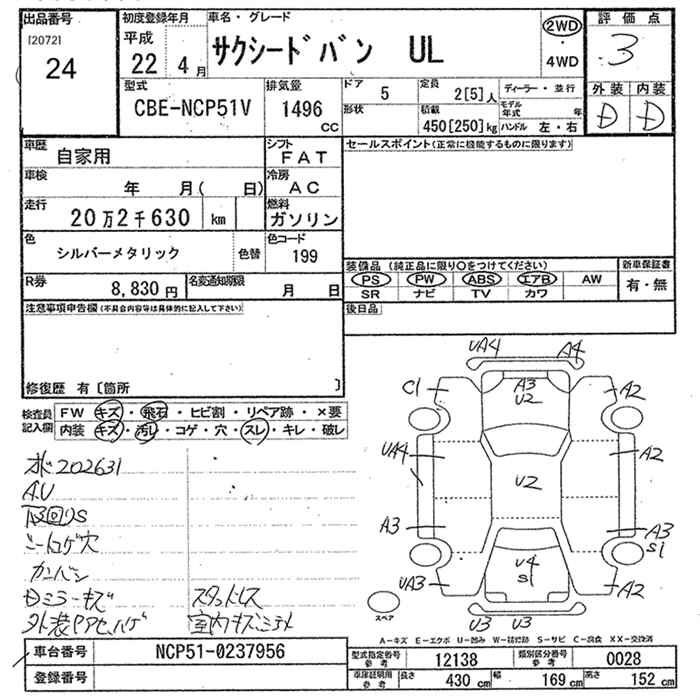 出品番号
[2072]
24
初度登録年月
平成
22 4月
車名・グレード
サクシードバン UL
2WD
・
4WD
評価点
3
外装 内装
D D
型式
CBE-NCP51V
排気量
1496
cc
ドア
5
形状
定員
2[5]人
積載
450[250]kg
ディーラー・並行
モデル年式 年
ハンドル 左・右
車歴
自家用
シフト
FAT
車検
年 月( 日)
冷房
AC
走行
20万2千630 km
燃料
ガソリン
色
シルバーメタリック
色替
色コード
199
R券
8,830円
名変通知期限
月 日
セールスポイント(正常に機能するものに限ります)
装備品(純正品に限り○をつけてください)
新車保証書
PS PW ABS エアB AW
有・無
SR ナビ TV カワ
後日品
注意事項申告欄(不具合内容等は具体的に記入して下さい)
修復歴 有〔箇所 〕
検査員
記入欄
FW キズ・飛石・ヒビ割・リペア跡・×要
内装 キズ・汚レ・コゲ・穴・スレ・キレ・破レ
202631
A.U
回りS
シートコゲ穴
カンバン
ミラーキズ
スタットレス
室内キズ
UA4 A4
C1 A3 U2 A2
UA4 U2 A2
A3 A3 S1
UA3 U4 S1 A2
U3 U3
スペア
A-キズ E-エクボ U-凹み W-補修跡 S-サビ C-腐食 XX-交換済
車台番号
NCP51-0237956
登録番号
型式指定番号
参考
12138
類別区分番号
参考
0028
車庫証明用
参考
長さ 430 cm 幅 169 cm 高さ 152 cm